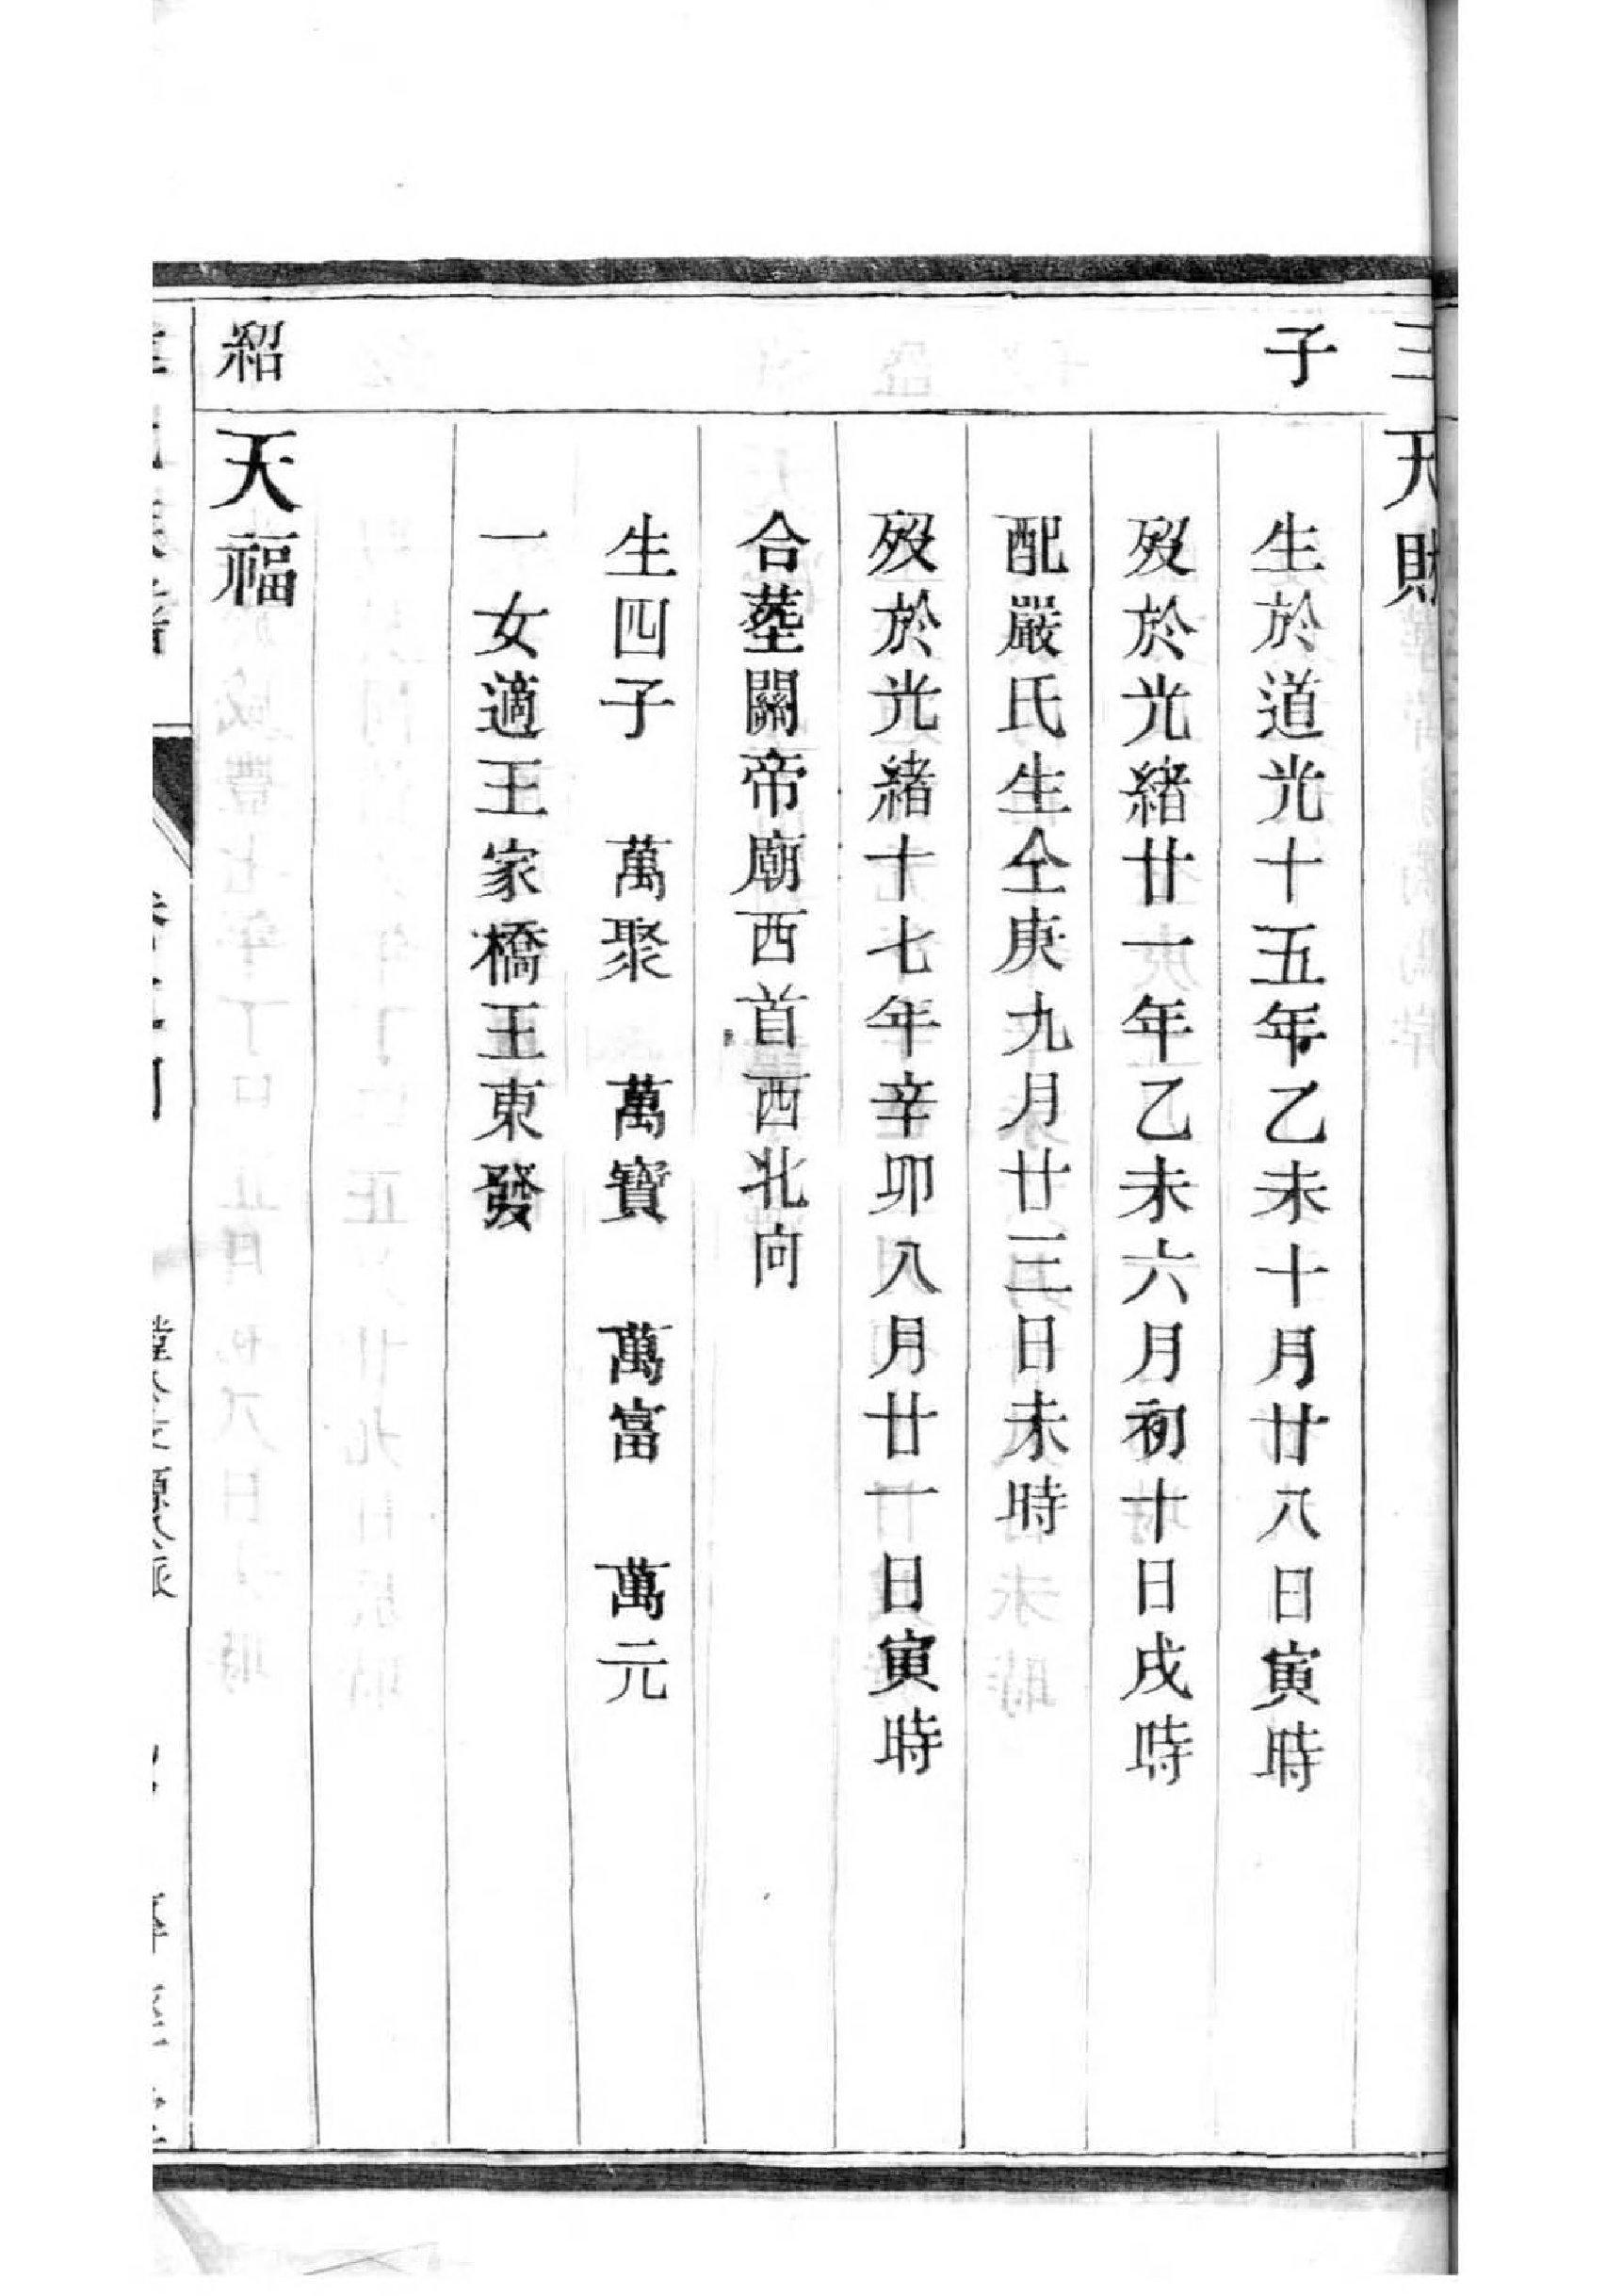 三
天財
子
生於道光十五年乙未十月廿八日寅時
歿於光緒廿一年乙未六月初十日戌時
配嚴氏生仝庚九月廿三日未時
歿於光緒十七年辛卯八月廿一日寅時
合塟關帝廟西首西北向
生四子　萬聚　萬寶　萬富　萬元
一女適王家橋王東發
紹
天福